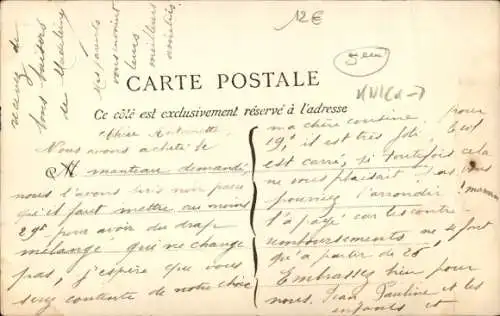 12€
CARTE POSTALE
Ce côté est exclusivement réservé à l'adresse
Chère Antoinette
Nous avons acheté le
manteau demandé,
nous l'avons pris non pas
qu'il faut mettre au moins
29f pour avoir du drap
mélangé qui ne change
pas, j'espère que vous
serez contente de notre choix
ma chère cousine, pour
19f, il est très joli, le col
est carré, si toutefois cela
ne vous plaisait pas vous
pourriez l'arrondir
l'a payé car les contre
remboursements ne se font
qu'à partir de 25f
Embrassez bien pour
nous. Jean Pauline et les
enfants et
maman
recevez de
bons baisers
de Madeleine
Mes parents
vous envoient
leurs
meilleures
amitiés